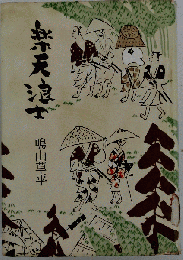 楽天浪士
鳴山草平